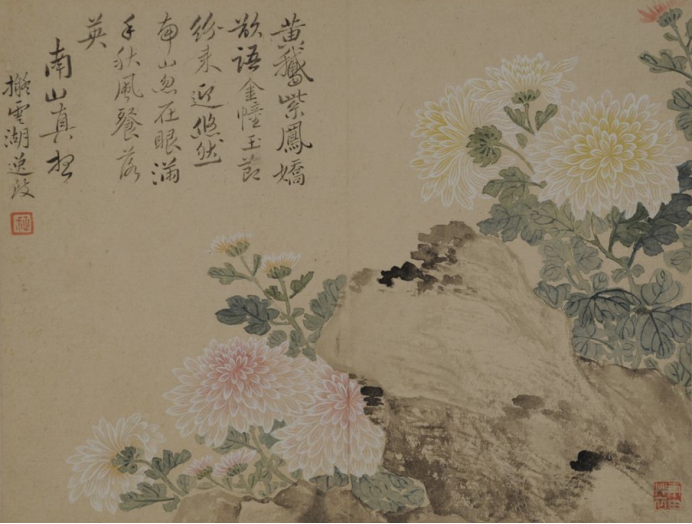 黄鵝紫鳳嬌
欲語金幢玉節
紛来迎悠然
南山忽在眼滿
手秋風餐落
英
南山真想
擬雲湖逸致